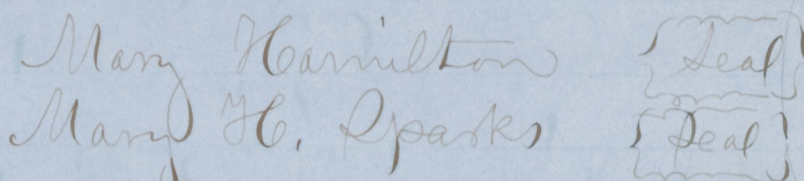 Mary Hamilton {Seal}
Mary H. Sparks {Seal}